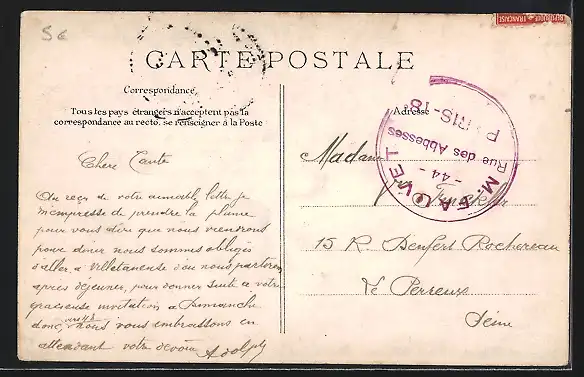 5€
REPUBLIQUE FRANÇAISE
CARTE POSTALE
Correspondance
Tous les pays étrangers n'acceptent pas la
correspondance au recto, se renseigner à la Poste
Chere Tante
Au reçu de votre aimable lettre je
m'empresse de prendre la plume
pour vous dire que nous viendrons
pour diner nous sommes obligés
d'aller a Villetaneuse d'ou nous partirons
apres déjeuner, pour donner suite a votre
gracieuse invitation a Dimanche
donc nous vous embrassons en
attendant votre devoué Adolphe
Adresse
Madame
15 R. Denfert Rochereau
Le Perreux
Seine
M. FAUVET
- 44 -
Rue des Abbesses
PARIS-18